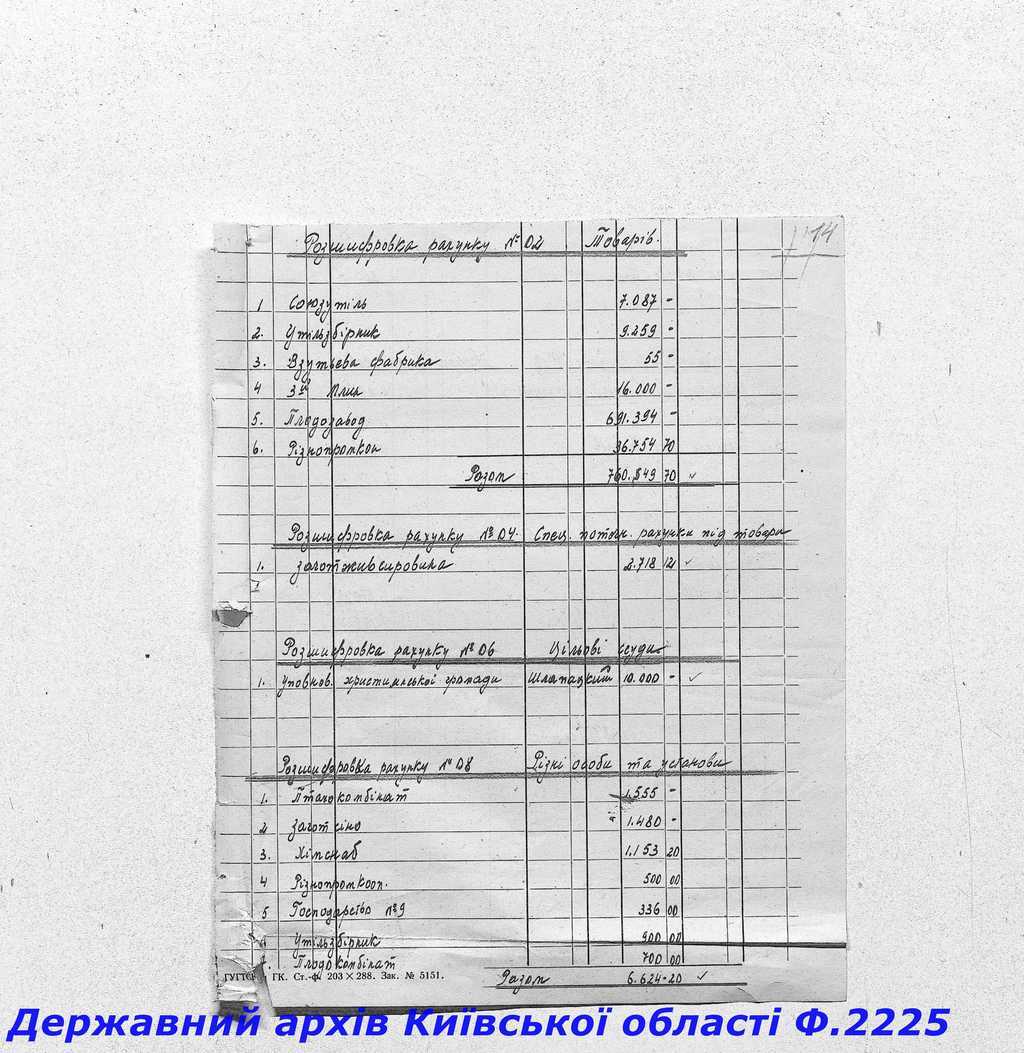 14
Розшифровка рахунку № 02 Товарів.
1 Союзутіль 7.087 -
2. Утільзбірник 9.259 -
3. Взутьєва фабрика 55 -
4 3ій Млин 16.000 -
5. Плодозавод 691.394 -
6. Різнопромкоп 36.754 70
Разом 760.549 70 ✓
Розшифровка рахунку № 04. Спец. поточн. рахунки під товари
1. Заготживсировина 2.718 12 ✓
Розшифровка рахунку № 06 Цільові ссуди
1. Уповнов. христианської громади Шлапацький 10.000 - ✓
Розшифровка рахунку № 08 Різні особи та установи
1. Птахокомбінат 1.555 -
2 Заготсіно 1.480 -
3. Хімснаб 1.153 20
4 Різнопромкооп. 500 00
5 Господарство №9 336 00
Утільзбірник 900 00
Плодокомбінат 700 00
ГК. Ст.-ф. 203×288. Зак. № 5151.
Разом 6.624-20 ✓
Державний архів Київської області Ф.2225